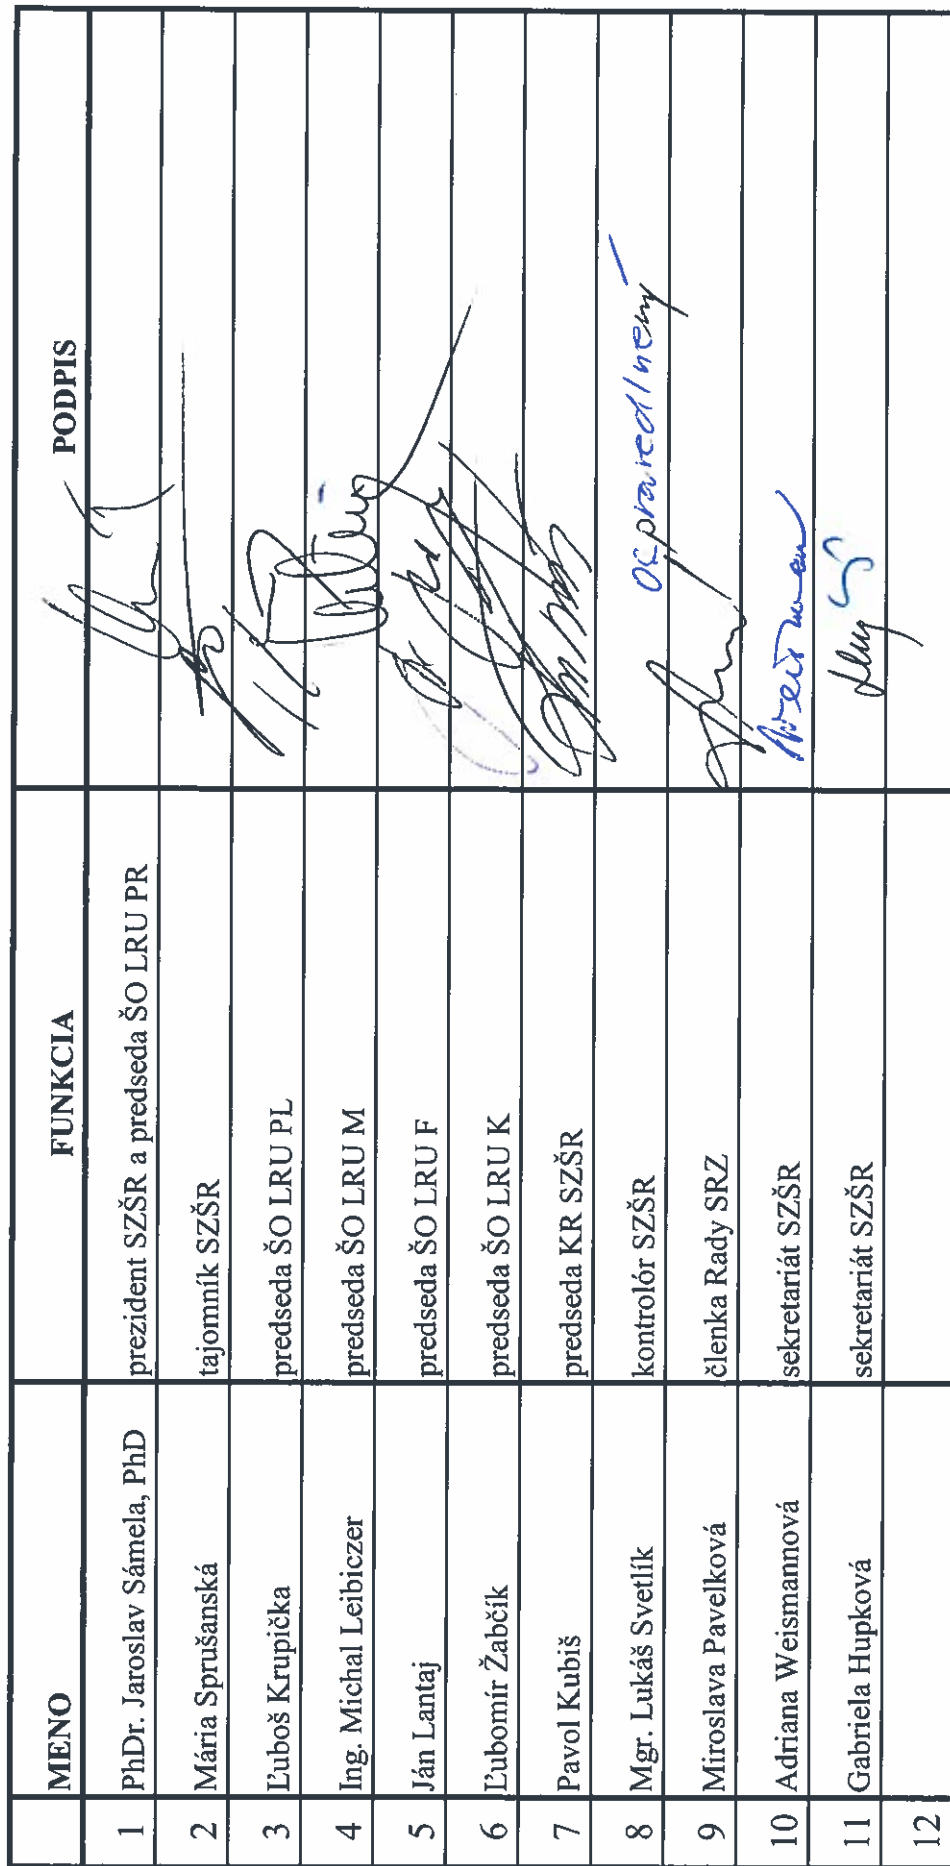 MENO FUNKCIA PODPIS
1 PhDr. Jaroslav Sámela, PhD prezident SZŠR a predseda ŠO LRU PR
2 Mária Sprušanská tajomník SZŠR
3 Ľuboš Krupička predseda ŠO LRU PL
4 Ing. Michal Leibiczer predseda ŠO LRU M
5 Ján Lantaj predseda ŠO LRU F
6 Ľubomír Žabčík predseda ŠO LRU K
7 Pavol Kubiš predseda KR SZŠR
8 Mgr. Lukáš Svetlík kontrolór SZŠR ospravedlnený
9 Miroslava Pavelková členka Rady SRZ
10 Adriana Weismannová sekretariát SZŠR
11 Gabriela Hupková sekretariát SZŠR
12